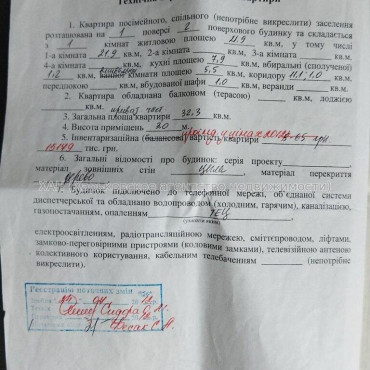 1. Квартира посімейного, спільного (непотрібне викреслити) заселення
розташована на 1 поверсі 2 поверхового будинку та складається
з 1 кімнат житловою площею 21.9 кв.м, у тому числі
1-а кімната 21.9 кв.м, 2-а кімната кв.м, 3-а кімната кв.м,
4-а кімната кв.м, кухні площею 7.9 кв.м, вбиральні (сполученої)
1.2 кв.м, ванної кімнати площею 5,5 кв.м, коридору 11,1; 1.0
передпокою кв.м, вбудованої шафи 1.0 кв.м, веранди кв.м.
2. Квартира обладнана балконом (терасою) кв.м, лоджією
кв.м.
3. Загальна площа квартири 32.3 кв.м.
4. Висота приміщень
5. Інвентаризаційна (балансова) вартість квартири
тис. грн.
6. Загальні відомості про будинок: серія проекту
матеріал зовнішніх стін цегла, матеріал перекриття
дерево
7. Будинок підключено до телефонної мережі, об'єднаної системи
диспетчерської та обладнано водопроводом (холодним, гарячим), каналізацією,
газопостачанням, опаленням ТЕЦ
електроосвітленням, радіотрансляційною мережею, сміттєпроводом, ліфтами,
замково-переговорними пристроями (кодовими замками), телевізійною антеною
колективного користування, кабельним телебаченням (непотрібне
викреслити).
Реєстрацію поточних змін